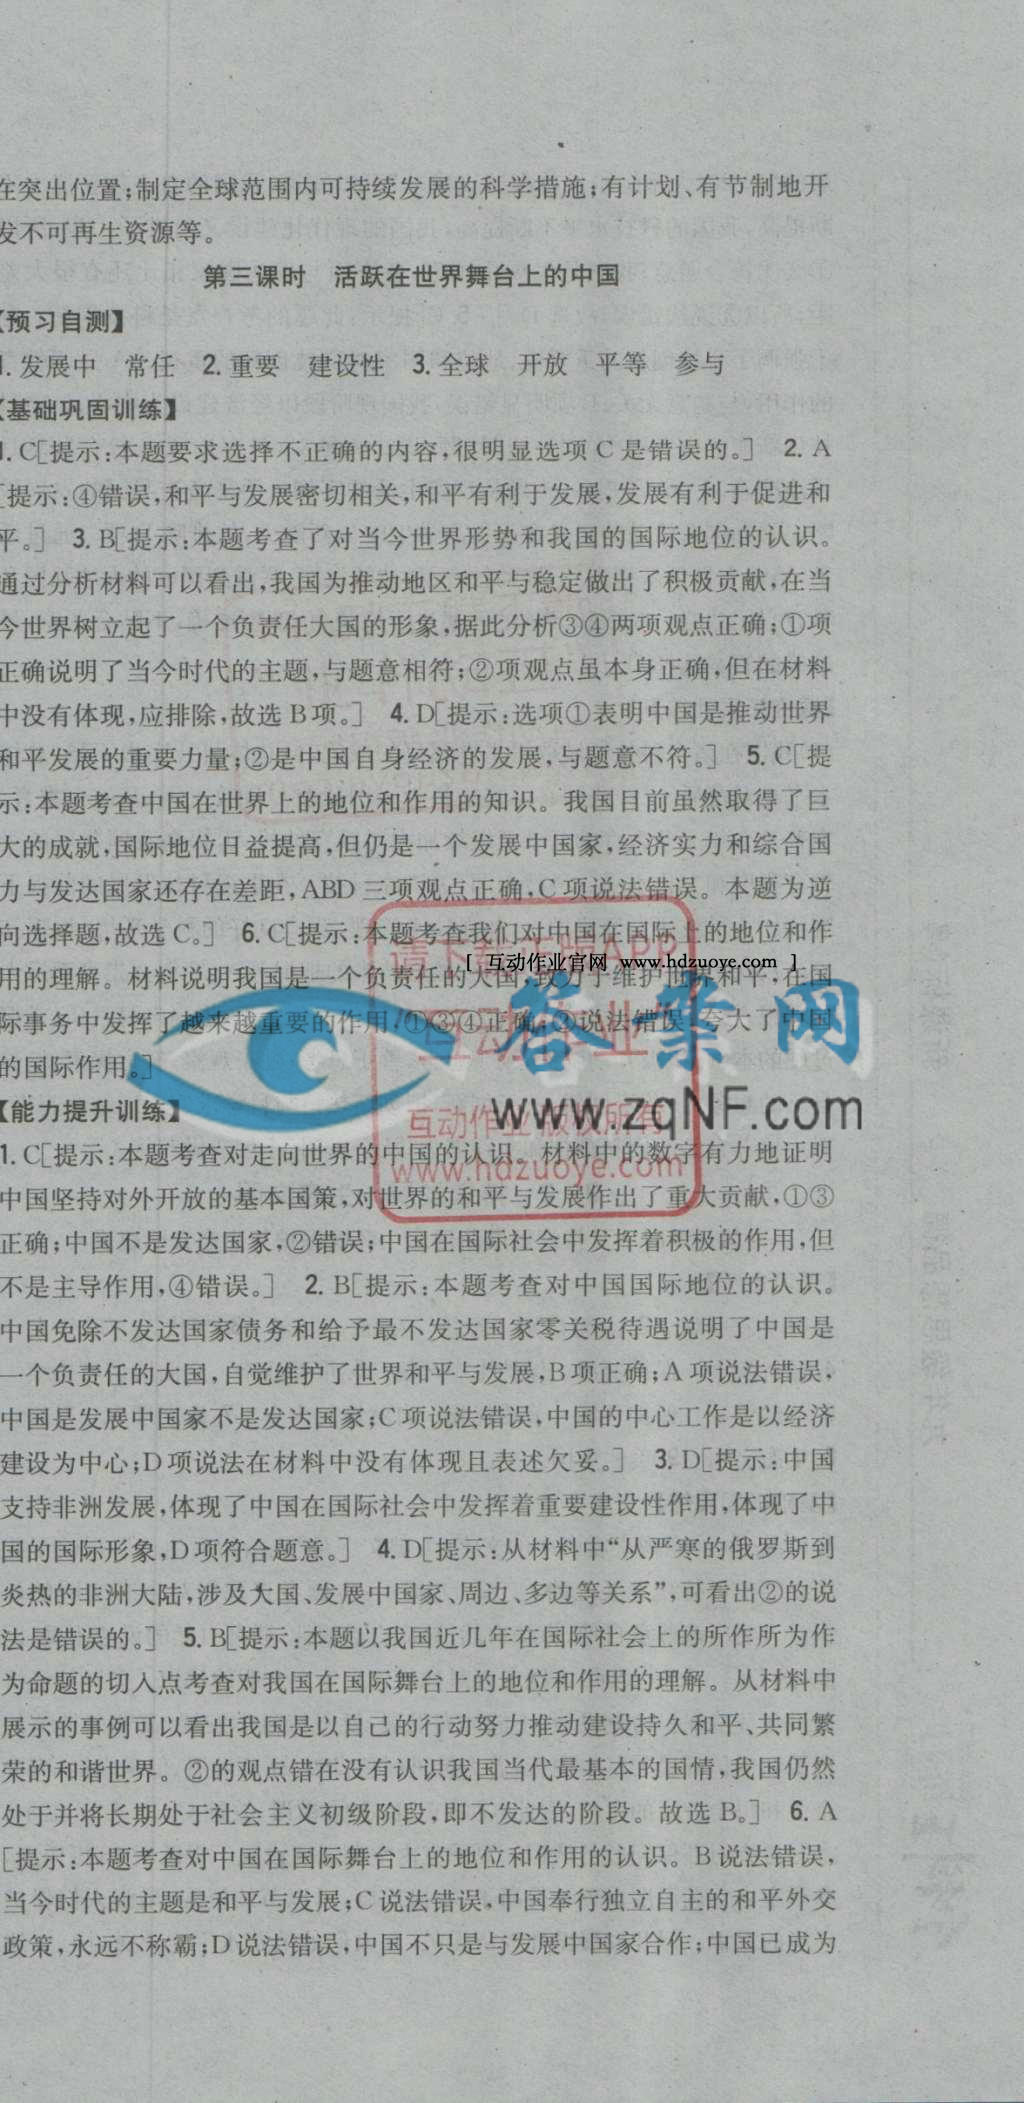 在突出位置;制定全球范围内可持续发展的科学措施;有计划、有节制地开
发不可再生资源等。
第三课时 活跃在世界舞台上的中国
【预习自测】
1. 发展中 常任 2. 重要 建设性 3. 全球 开放 平等 参与
【基础巩固训练】
1. C[提示:本题要求选择不正确的内容,很明显选项 C 是错误的。] 2. A
[提示:④错误,和平与发展密切相关,和平有利于发展,发展有利于促进和
平。] 3. B[提示:本题考查了对当今世界形势和我国的国际地位的认识。
通过分析材料可以看出,我国为推动地区和平与稳定做出了积极贡献,在当
今世界树立起了一个负责任大国的形象,据此分析③④两项观点正确;①项
正确说明了当今时代的主题,与题意相符;②项观点虽本身正确,但在材料
中没有体现,应排除,故选 B 项。] 4. D[提示:选项①表明中国是推动世界
和平发展的重要力量;②是中国自身经济的发展,与题意不符。] 5. C[提
示:本题考查中国在世界上的地位和作用的知识。我国目前虽然取得了巨
大的成就,国际地位日益提高,但仍是一个发展中国家,经济实力和综合国
力与发达国家还存在差距,ABD 三项观点正确,C 项说法错误。本题为逆
向选择题,故选 C。] 6. C[提示:本题考查我们对中国在国际上的地位和作
用的理解。材料说明我国是一个负责任的大国,致力于维护世界和平,在国
际事务中发挥了越来越重要的作用,①③④正确;③说法错误,夸大了中国
的国际作用。]
【能力提升训练】
1. C[提示:本题考查对走向世界的中国的认识。材料中的数字有力地证明
中国坚持对外开放的基本国策,对世界的和平与发展作出了重大贡献,①③
正确;中国不是发达国家,②错误;中国在国际社会中发挥着积极的作用,但
不是主导作用,④错误。] 2. B[提示:本题考查对中国国际地位的认识。
中国免除不发达国家债务和给予最不发达国家零关税待遇说明了中国是
一个负责任的大国,自觉维护了世界和平与发展,B 项正确;A 项说法错误,
中国是发展中国家不是发达国家;C 项说法错误,中国的中心工作是以经济
建设为中心;D 项说法在材料中没有体现且表述欠妥。] 3. D[提示:中国
支持非洲发展,体现了中国在国际社会中发挥着重要建设性作用,体现了中
国的国际形象,D 项符合题意。] 4. D[提示:从材料中“从严寒的俄罗斯到
炎热的非洲大陆,涉及大国、发展中国家、周边、多边等关系”,可看出②的说
法是错误的。] 5. B[提示:本题以我国近几年在国际社会上的所作所为作
为命题的切入点考查对我国在国际舞台上的地位和作用的理解。从材料中
展示的事例可以看出我国是以自己的行动努力推动建设持久和平、共同繁
荣的和谐世界。②的观点错在没有认识我国当代最基本的国情,我国仍然
处于并将长期处于社会主义初级阶段,即不发达的阶段。故选 B。] 6. A
[提示:本题考查对中国在国际舞台上的地位和作用的认识。B 说法错误,
当今时代的主题是和平与发展;C 说法错误,中国奉行独立自主的和平外交
政策,永远不称霸;D 说法错误,中国不只是与发展中国家合作;中国已成为
请下载正版APP
[ 互动作业官网 www.hdzuoye.com ]
互动作业
互动作业 版权所有
www.hdzuoye.com
答案网
www.zqNF.com